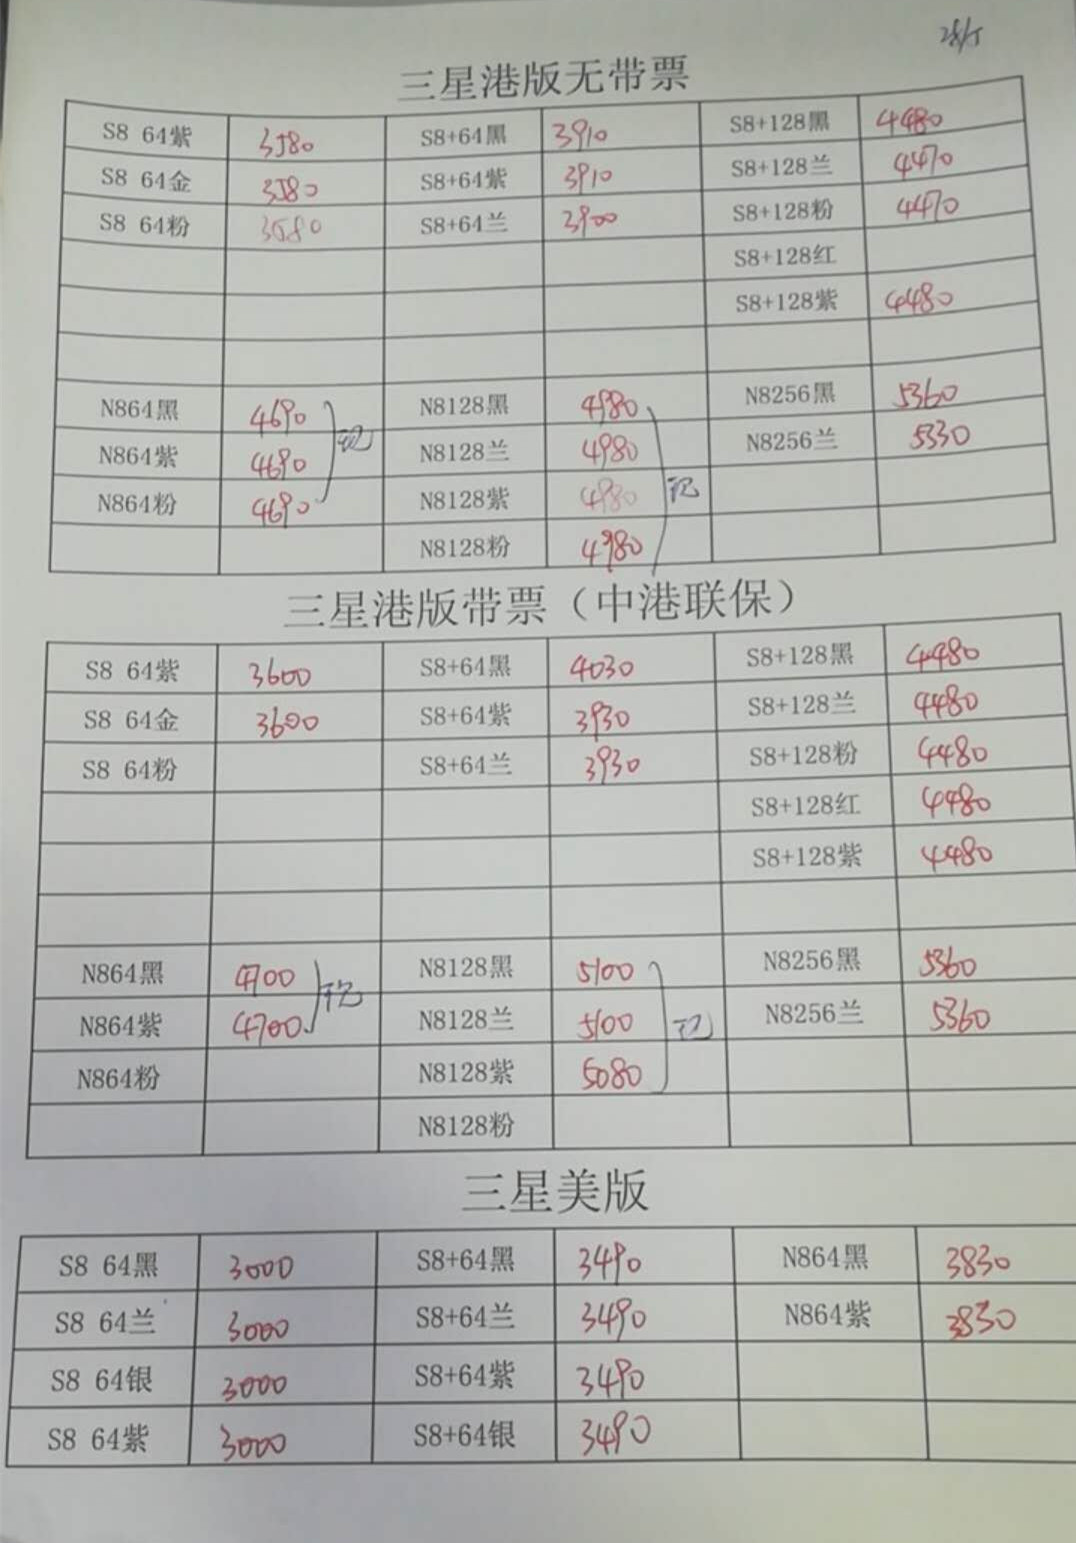 28/5
三星港版无带票
S8 64紫 3580 S8+64黑 3910 S8+128黑 4480
S8 64金 3580 S8+64紫 3910 S8+128兰 4470
S8 64粉 3580 S8+64兰 3900 S8+128粉 4470
S8+128红
S8+128紫 4480
N864黑 4690 N8128黑 4980 N8256黑 5360
N864紫 4690 N8128兰 4980 N8256兰 5330
N864粉 4690 N8128紫 4980
N8128粉 4980
三星港版带票（中港联保）
S8 64紫 3600 S8+64黑 4030 S8+128黑 4480
S8 64金 3600 S8+64紫 3930 S8+128兰 4480
S8 64粉 S8+64兰 3930 S8+128粉 4480
S8+128红 4480
S8+128紫 4480
N864黑 4700 N8128黑 5100 N8256黑 5360
N864紫 4700 N8128兰 5100 N8256兰 5360
N864粉 N8128紫 5080
N8128粉
三星美版
S8 64黑 3000 S8+64黑 3490 N864黑 3830
S8 64兰 3000 S8+64兰 3490 N864紫 3830
S8 64银 3000 S8+64紫 3490
S8 64紫 3000 S8+64银 3490